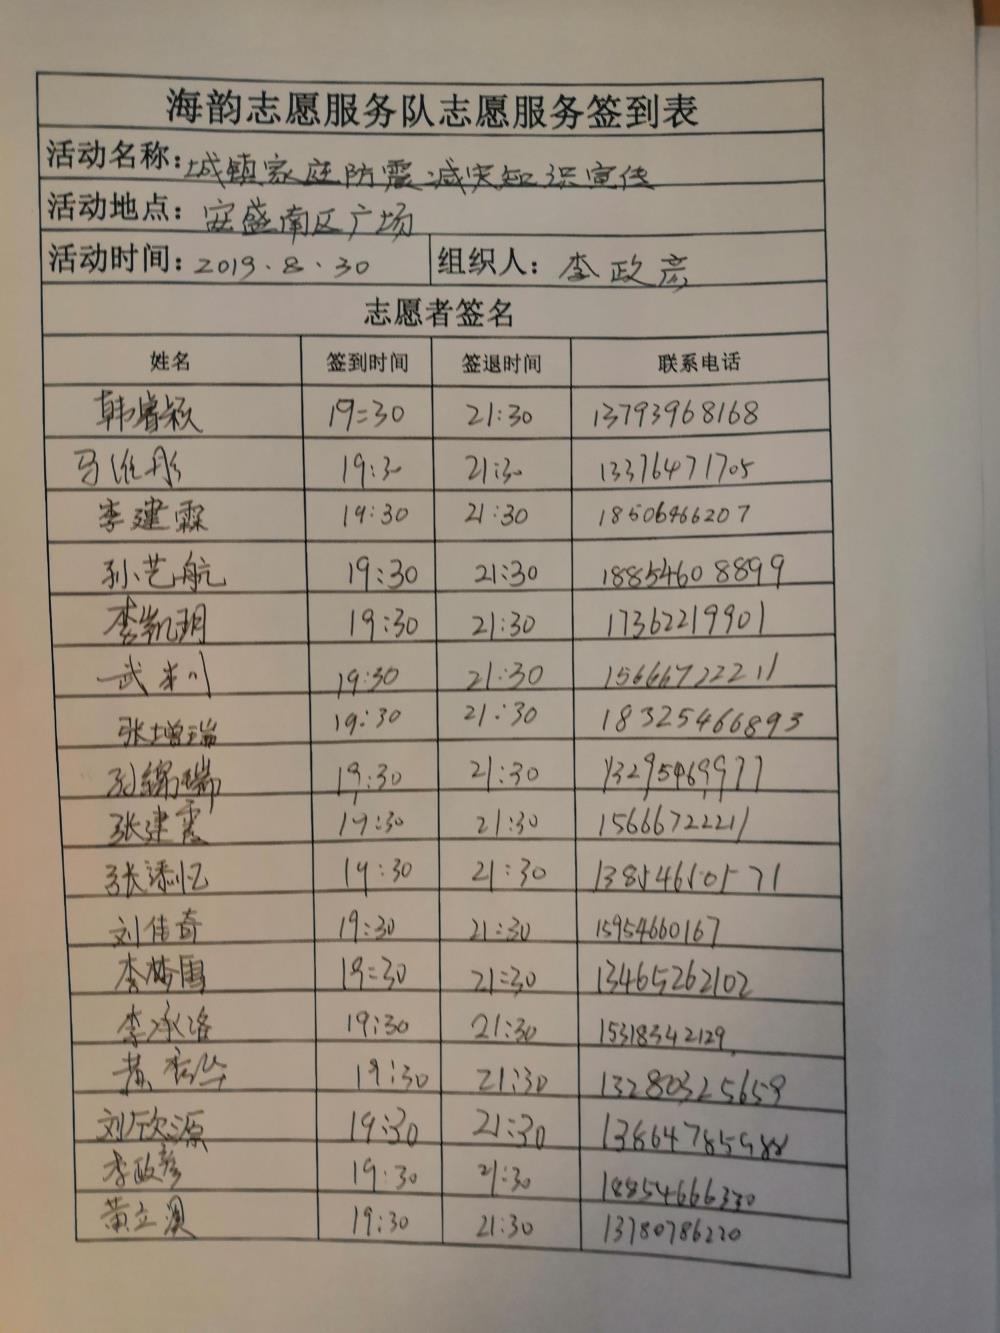 海韵志愿服务队志愿服务签到表
活动名称：城镇家庭防震减灾知识宣传
活动地点：安盛南区广场
活动时间：2019.8.30 组织人：李政彦
志愿者签名
姓名 签到时间 签退时间 联系电话
韩睿颖 19:30 21:30 13793968168
马维彤 19:30 21:30 13376471705
李建霖 19:30 21:30 18506466207
孙艺航 19:30 21:30 18854608899
李凯玥 19:30 21:30 17362219901
武 19:30 21:30 15666722211
张增瑞 19:30 21:30 18325466893
孙 瑞 19:30 21:30 13295469977
张建霞 19:30 21:30 15666722211
张添忆 19:30 21:30 13854650571
刘佳奇 19:30 21:30 15954660167
李梦雪 19:30 21:30 13465262102
李承洛 19:30 21:30 15318342129
黄秀华 19:30 21:30 13280325659
刘欣源 19:30 21:30 13864785988
李政彦 19:30 21:30 18854666330
黄立澳 19:30 21:30 13780786220